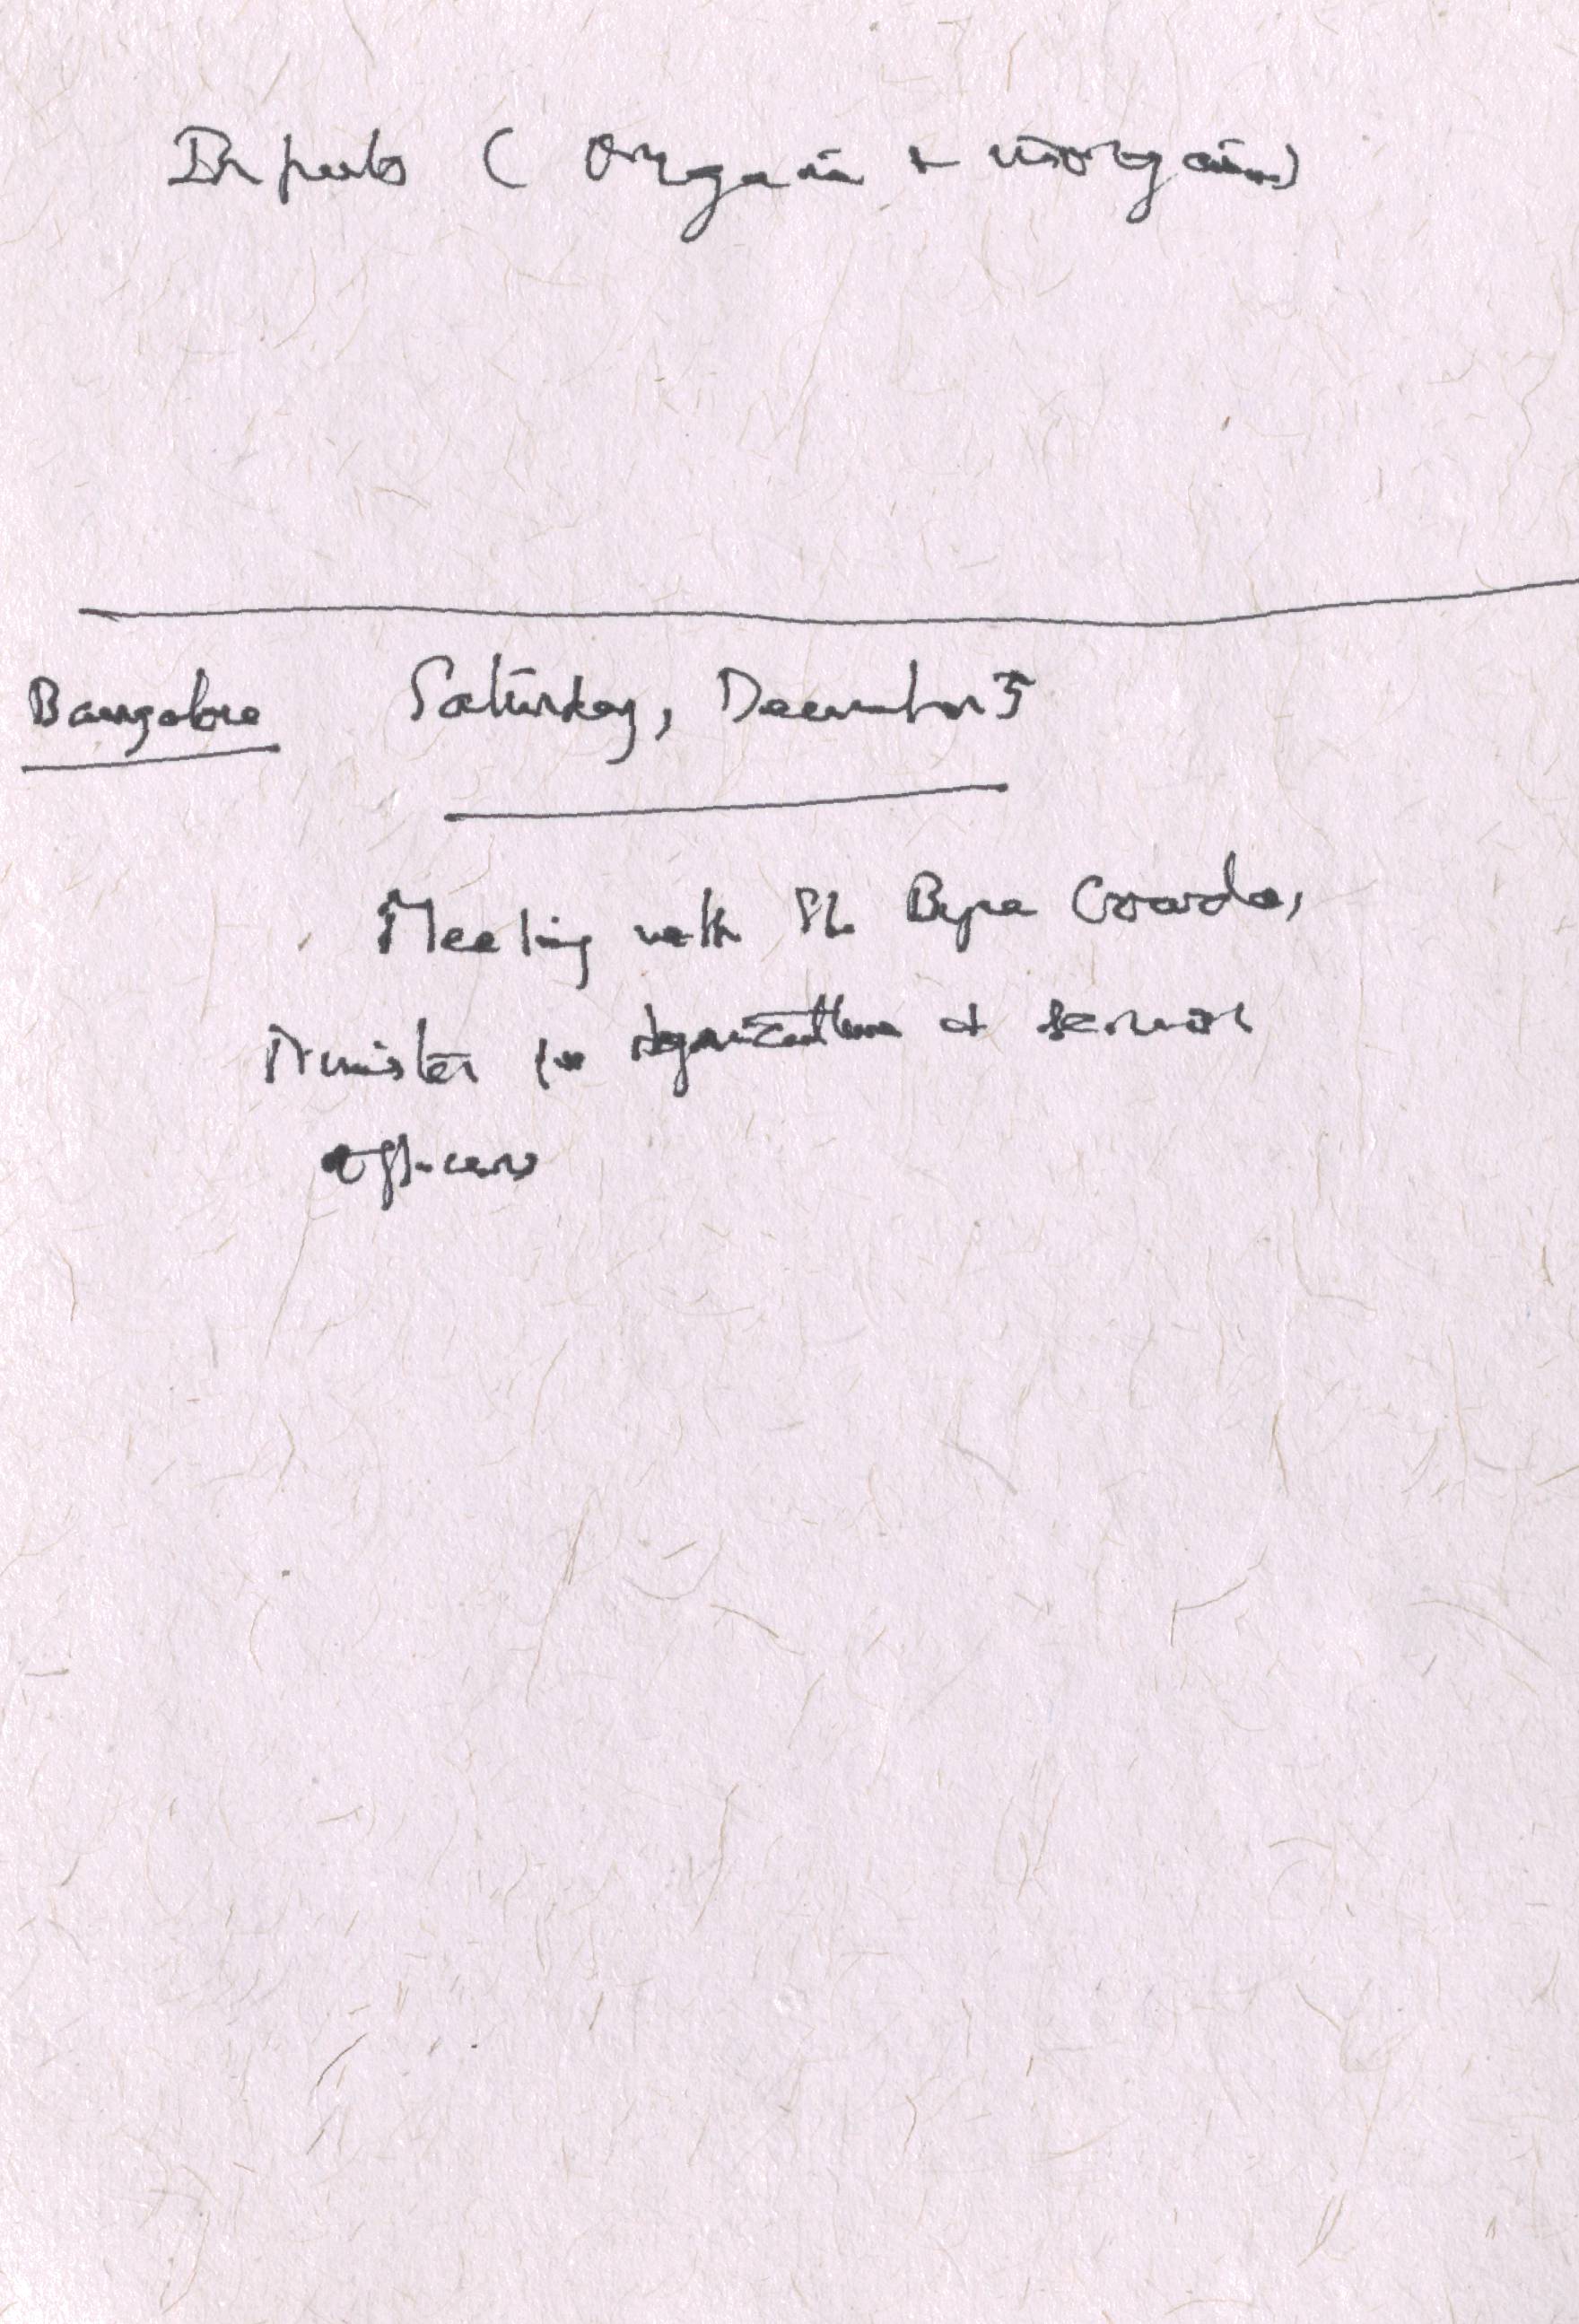 Inputs (Organic + inorganic)
Bangalore Saturday, December 5
Meeting with Sh. Byre Gowda,
Minister for Agriculture & senior
officers